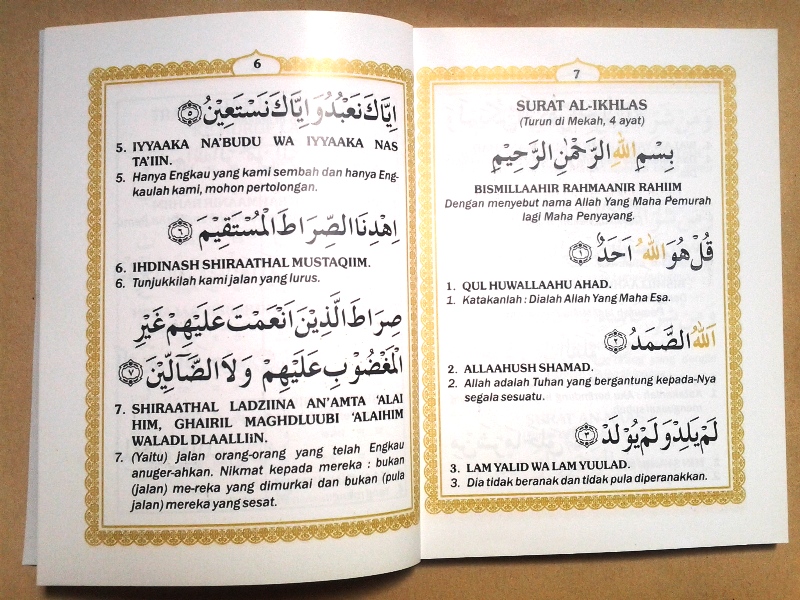 6
اِيَّاكَ نَعْبُدُ وَاِيَّاكَ نَسْتَعِيْنُ ۝٥
5. IYYAAKA NA'BUDU WA IYYAAKA NAS
TA'IIN.
5. Hanya Engkau yang kami sembah dan hanya Eng-
kaulah kami, mohon pertolongan.
اِهْدِنَا الصِّرَاطَ الْمُسْتَقِيْمَ ۝٦
6. IHDINASH SHIRAATHAL MUSTAQIIM.
6. Tunjukkilah kami jalan yang lurus.
صِرَاطَ الَّذِيْنَ اَنْعَمْتَ عَلَيْهِمْ غَيْرِ
الْمَغْضُوْبِ عَلَيْهِمْ وَلَا الضَّآلِّيْنَ ۝٧
7. SHIRAATHAL LADZIINA AN'AMTA 'ALAI
HIM, GHAIRIL MAGHDLUUBI 'ALAIHIM
WALADL DLAALLIiN.
7. (Yaitu) jalan orang-orang yang telah Engkau
anuger-ahkan. Nikmat kepada mereka : bukan
(jalan) me-reka yang dimurkai dan bukan (pula
jalan) mereka yang sesat.
7
SURAT AL-IKHLAS
(Turun di Mekah, 4 ayat)
بِسْمِ اللهِ الرَّحْمٰنِ الرَّحِيْمِ
BISMILLAAHIR RAHMAANIR RAHIIM
Dengan menyebut nama Allah Yang Maha Pemurah
lagi Maha Penyayang.
قُلْ هُوَ اللهُ اَحَدٌ ۝١
1. QUL HUWALLAAHU AHAD.
1. Katakanlah : Dialah Allah Yang Maha Esa.
اَللهُ الصَّمَدُ ۝٢
2. ALLAAHUSH SHAMAD.
2. Allah adalah Tuhan yang bergantung kepada-Nya
segala sesuatu.
لَمْ يَلِدْ وَلَمْ يُوْلَدْ ۝٣
3. LAM YALID WA LAM YUULAD.
3. Dia tidak beranak dan tidak pula diperanakkan.